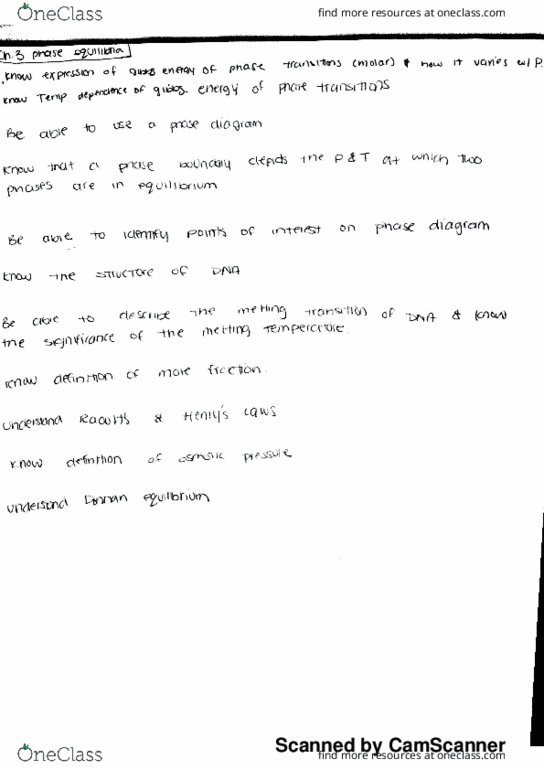 OneClass
find more resources at oneclass.com
Ch.3 phase Equilibria
Know expression of Gibbs energy of phase transitions (molar) & how it varies w/ P.
Know Temp dependence of gibbs energy of phase transitions
Be able to use a phase diagram
Know that a phase boundary depids the P & T at which two
phases are in equilibrium
Be able to identify points of interest on phase diagram
Know the structure of DNA
Be able to describe the melting transition of DNA & know
the significance of the melting temperature.
Know definition of mole fraction.
understand Raoults & Henry's Laws
Know definition of osmotic pressure
understand Donnan equilibrium
Scanned by CamScanner
OneClass
find more resources at oneclass.com